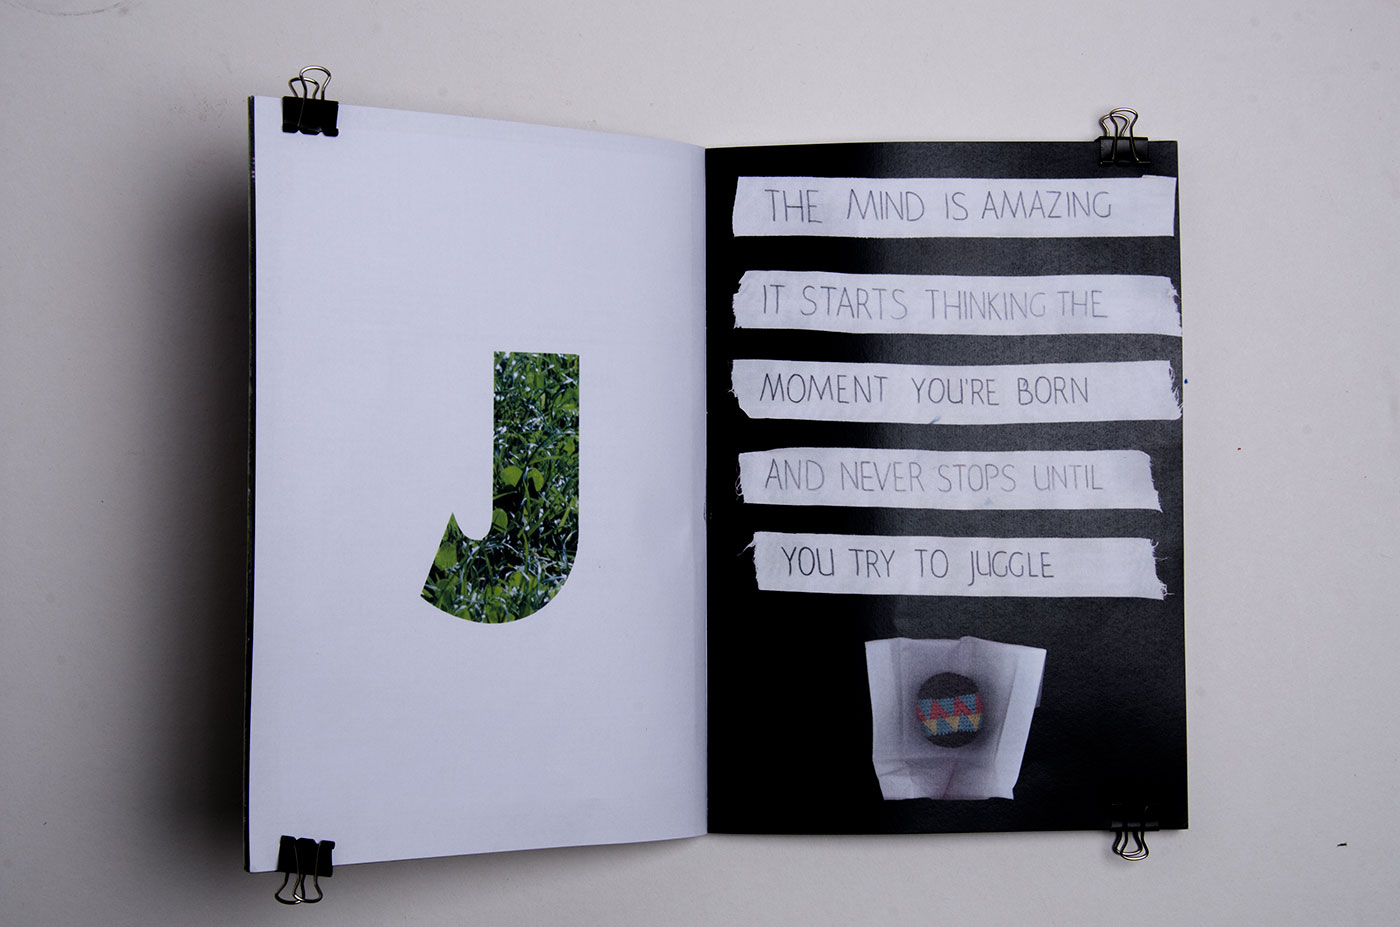 J
THE MIND IS AMAZING
IT STARTS THINKING THE
MOMENT YOU'RE BORN
AND NEVER STOPS UNTIL
YOU TRY TO JUGGLE